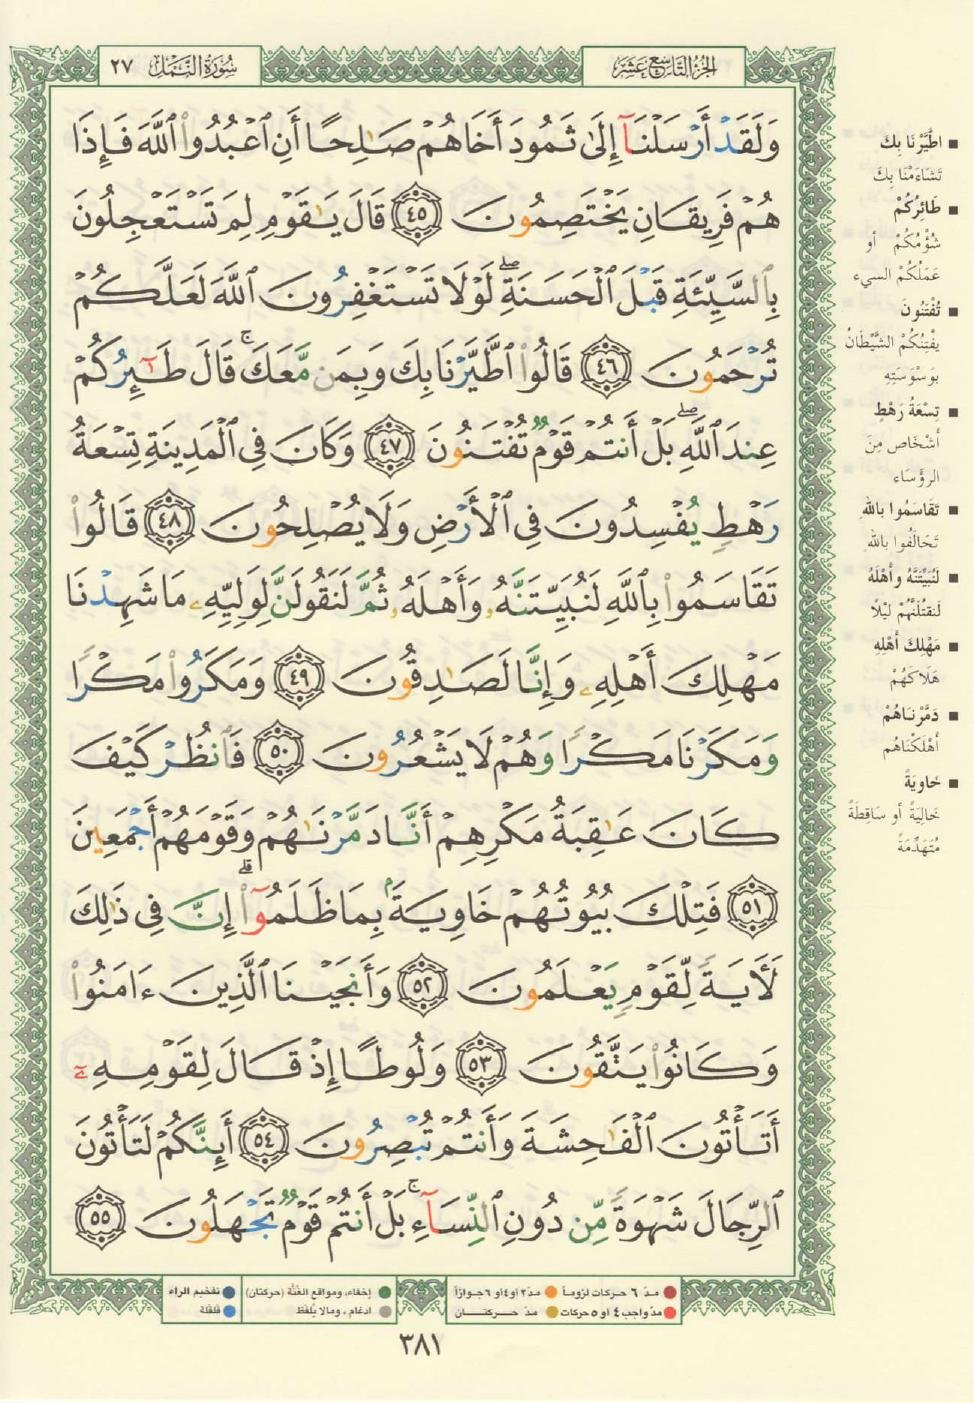 الجزء التاسع عشر
سورة النمل ٢٧
وَلَقَدْ أَرْسَلْنَآ إِلَىٰ ثَمُودَ أَخَاهُمْ صَـٰلِحًا أَنِ ٱعْبُدُوا۟ ٱللَّهَ فَإِذَا
هُمْ فَرِيقَانِ يَخْتَصِمُونَ ٤٥ قَالَ يَـٰقَوْمِ لِمَ تَسْتَعْجِلُونَ
بِٱلسَّيِّئَةِ قَبْلَ ٱلْحَسَنَةِ ۖ لَوْلَا تَسْتَغْفِرُونَ ٱللَّهَ لَعَلَّكُمْ
تُرْحَمُونَ ٤٦ قَالُوا۟ ٱطَّيَّرْنَا بِكَ وَبِمَن مَّعَكَ ۚ قَالَ طَـٰٓئِرُكُمْ
عِندَ ٱللَّهِ ۖ بَلْ أَنتُمْ قَوْمٌ تُفْتَنُونَ ٤٧ وَكَانَ فِى ٱلْمَدِينَةِ تِسْعَةُ
رَهْطٍ يُفْسِدُونَ فِى ٱلْأَرْضِ وَلَا يُصْلِحُونَ ٤٨ قَالُوا۟
تَقَاسَمُوا۟ بِٱللَّهِ لَنُبَيِّتَنَّهُۥ وَأَهْلَهُۥ ثُمَّ لَنَقُولَنَّ لِوَلِيِّهِۦ مَا شَهِدْنَا
مَهْلِكَ أَهْلِهِۦ وَإِنَّا لَصَـٰدِقُونَ ٤٩ وَمَكَرُوا۟ مَكْرًا
وَمَكَرْنَا مَكْرًا وَهُمْ لَا يَشْعُرُونَ ٥٠ فَٱنظُرْ كَيْفَ
كَانَ عَـٰقِبَةُ مَكْرِهِمْ أَنَّا دَمَّرْنَـٰهُمْ وَقَوْمَهُمْ أَجْمَعِينَ
٥١ فَتِلْكَ بُيُوتُهُمْ خَاوِيَةًۢ بِمَا ظَلَمُوٓا۟ ۗ إِنَّ فِى ذَٰلِكَ
لَـَٔايَةً لِّقَوْمٍ يَعْلَمُونَ ٥٢ وَأَنجَيْنَا ٱلَّذِينَ ءَامَنُوا۟
وَكَانُوا۟ يَتَّقُونَ ٥٣ وَلُوطًا إِذْ قَالَ لِقَوْمِهِۦٓ
أَتَأْتُونَ ٱلْفَـٰحِشَةَ وَأَنتُمْ تُبْصِرُونَ ٥٤ أَئِنَّكُمْ لَتَأْتُونَ
ٱلرِّجَالَ شَهْوَةً مِّن دُونِ ٱلنِّسَآءِ ۚ بَلْ أَنتُمْ قَوْمٌ تَجْهَلُونَ ٥٥
■ اطَّيَّرْنَا بِكَ
تَشَاءَمْنَا بِكَ
■ طَائِرُكُمْ
شُؤْمُكُمْ أو
عَمَلُكُمْ السيء
■ تُفْتَنُونَ
يَفْتِنُكُمْ الشَّيْطَانُ
بِوَسْوَسَتِهِ
■ تِسْعَةُ رَهْطٍ
أَشْخَاص مِنَ
الرؤَسَاء
■ تَقَاسَمُوا بِاللهِ
تَحَالَفُوا بِاللهِ
■ لَنُبَيِّتَنَّهُ وأَهْلَهُ
لَنَقْتُلَنَّهُمْ لَيْلًا
■ مَهْلِكَ أَهْلِهِ
هَلَاكَهُمْ
■ دَمَّرْنَاهُمْ
أَهْلَكْنَاهُم
■ خَاوِيَةً
خَالِيَةً أو سَاقِطَةً
مُتَهَدِّمَةً
مدّ ٦ حركات لزوماً مدّ ٢ أو ٤ أو ٦ جوازاً
مدّ واجب ٤ أو ٥ حركات مدّ حركتــان
إخفاء، ومواقع الغُنَّة (حركتان) تفخيم الراء
ادغام ، ومالا يُلفَظ قلقلة
٣٨١